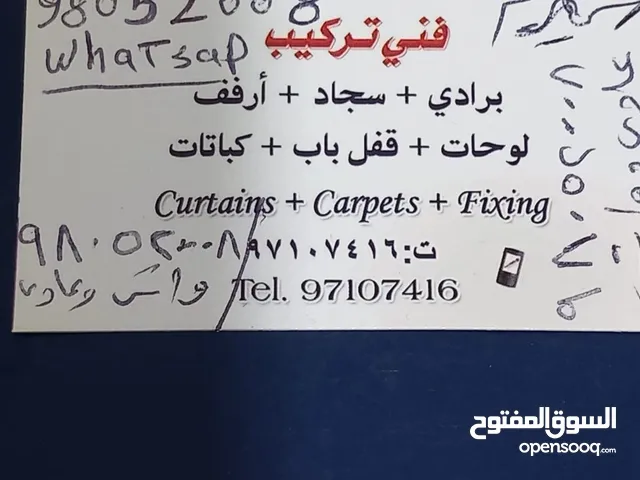 98052008
WhaTsap
فني تركيب
برادي + سجاد + أرفف
لوحات + قفل باب + كباتات
Curtains + Carpets + Fixing
ت: ٩٧١٠٧٤١٦
٩٨٠٥٢٠٠٨
Tel. 97107416
السوق المفتوح
opensooq.com